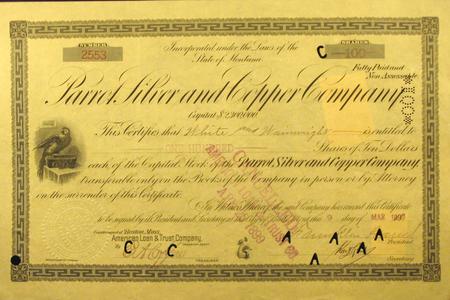 NUMBER
2553
SHARES
C 100
Incorporated under the Laws of the
State of Montana.
Fully Paid and
Non Assessable
Parrot Silver and Copper Company
Capital $2,300,000
*100*
This Certifies that White and Wainwright is entitled to
ONE HUNDRED Shares of Ten Dollars
each, of the Capital Stock of the Parrot Silver and Copper Company,
transferable only on the Books of the Company in person or by Attorney
on the surrender of this Certificate.
In Witness Whereof, the said Company has caused this Certificate
to be signed by its President and Secretary
9 day of MAR 1900
Countersigned at Boston, Mass.
American Loan & Trust Company,
1899
President
C C
A A A A A A